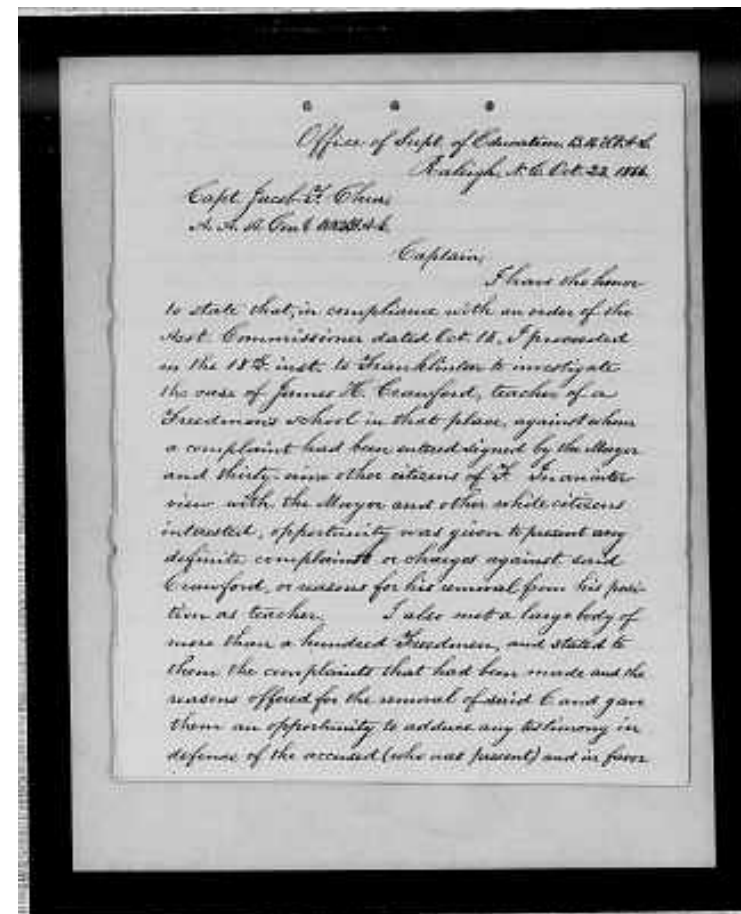 Office of Supt. of Education, B.R.F.& A.L.
Raleigh, N. C. Oct. 22, 1866.
Capt. Jacob F. Chur,
A. A. A. Gen'l
Captain,
I have the honor
to state that, in compliance with an order of the
Asst. Commissioner dated Oct. 16, I proceeded
on the 18th inst. to Franklinton to investigate
the case of James H. Crawford, teacher of a
Freedmen's school in that place, against whom
a complaint had been entered signed by the Mayor
and thirty-nine other citizens of F. In an inter
view with the Mayor and other white citizens
interested, opportunity was given to present any
definite complaints or charges against said
Crawford, or reasons for his removal from his posi-
tion as teacher. I also met a large body of
more than a hundred Freedmen, and stated to
them the complaints that had been made and the
reasons offered for the removal of said C and gave
them an opportunity to adduce any testimony in
defense of the accused (who was present) and in favor